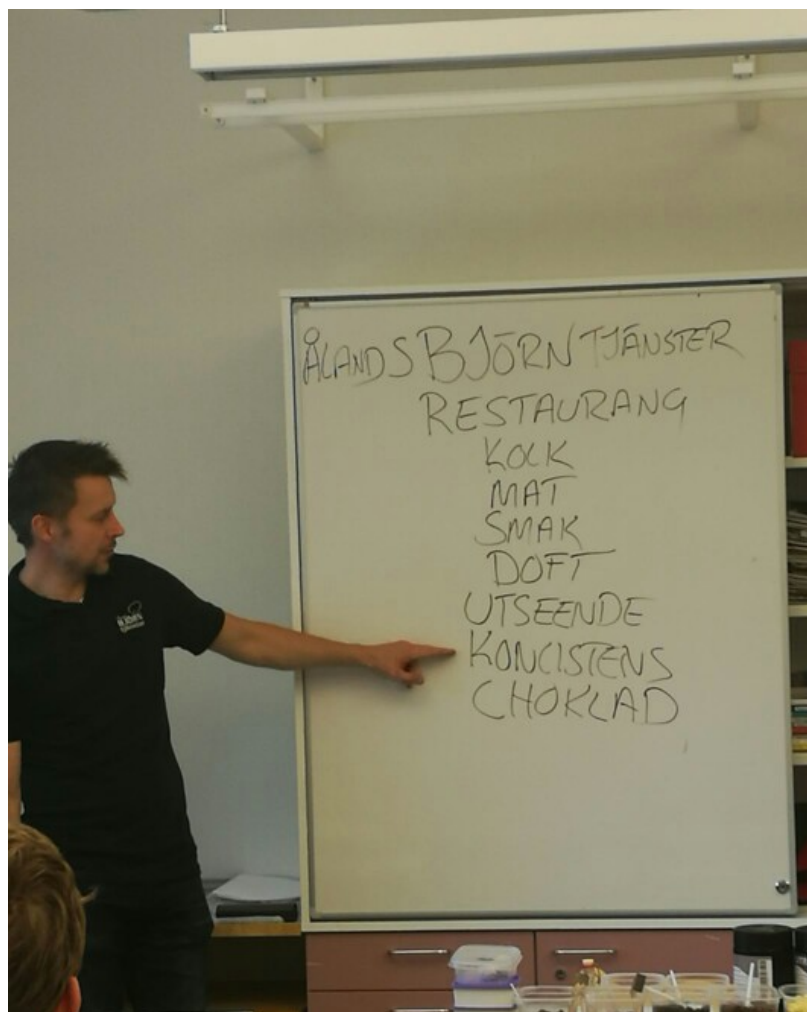 ÅLANDS BJÖRN TJÄNSTER
RESTAURANG
KOCK
MAT
SMAK
DOFT
UTSEENDE
KONCISTENS
CHOKLAD